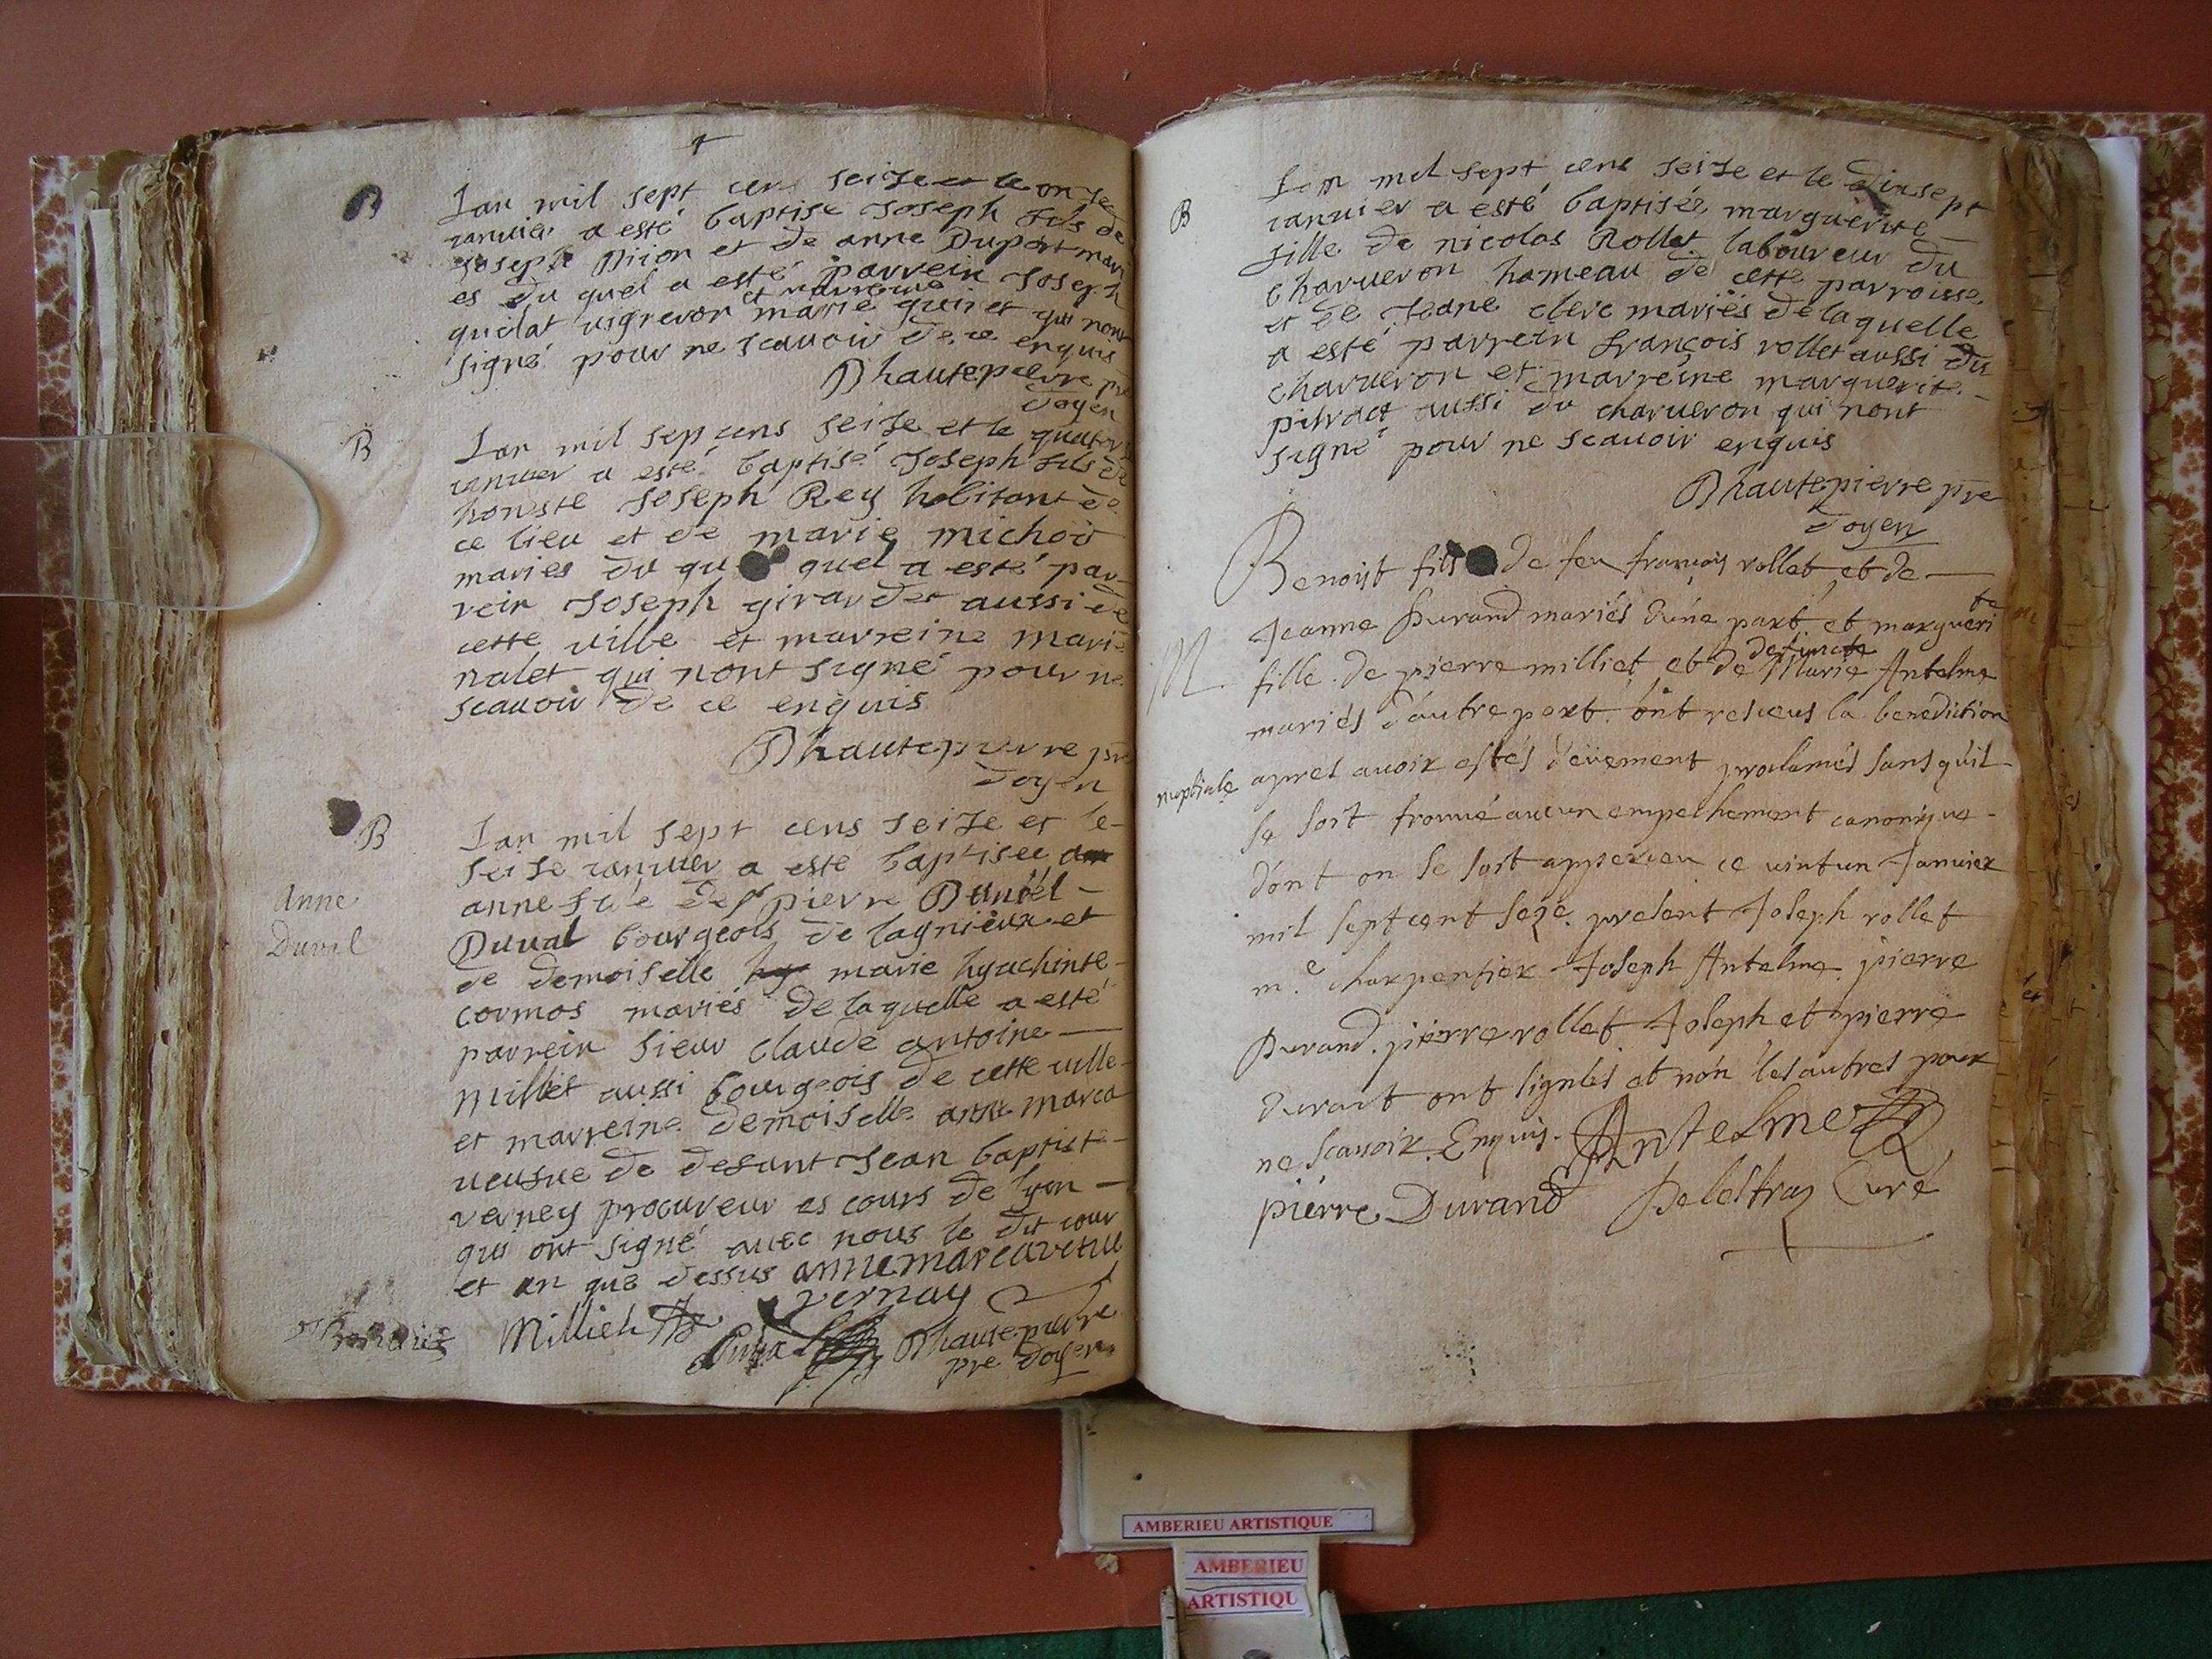 B
Lan mil sept cens seize et le onze
ianuier a esté baptisé Joseph fils de
Joseph Dijon et de anne Duport mari
es du quel a esté parrein Joseph
et marreine
quilat uigneron marie guiret qui nont
signé pour ne scauoir de ce enquis
Dhautepierre pre
doyen
B
Lan mil sep cens seize et le quator
ianuier a esté baptisé Joseph fils de
honeste Joseph Rey habitant de
ce lieu et de marie michod
maries du qu quel a esté par
rein Joseph girardet aussi de
cette ville et marreine marie
nalet qui nont signé pour ne
scauoir de ce enquis
Dhautepierre pre
doyen
B
Lan mil sept cens seize et le
seize ianuier a esté baptisée
Anne
Duval
anne de Sr pierre
Duual bourgeois de lagnieux et
de demoiselle hya marie hyachinte
cormos mariés de laquelle a esté
parrein sieur claude antoine
milliet aussi bourgeois de cette ville
et marreine demoiselle anne marca
ueusue de defunt Jean baptiste
verney procureur es cours de lyon
qui ont signé auec nous le dit iour
et an que dessus anne marca vetue
vernay
Millieh
Duual
Dhautepierre
pre doyen
B
Lan mil sept cens seize et le dixsept
ianuier a esté baptisée marguerite
fille de nicolas Rollet laboureur du
charueron hameau de cette parroisse
et de Jeane clerc mariés de laquelle
a esté parrein françois rollet aussi du
charueron et marreine marguerite
aussi du charueron qui nont
signé pour ne scauoir enquis
Dhautepierre pre
doyen
Benoist fils de feu francois rollet et de
Jeanne Durand mariés dune part et margueri
te
M
defuncte
fille de pierre milliet et de Marie Antelme
mariés dautre part ont receus la benediction
nuptiale apres auoir estés deuement proclamés sans quil
se soit trouué aucun empechement canonique
dont on se soit apperceu ce vint un Januier
mil sept cent seze present Joseph rollet
me charpentier Joseph Antelme pierre
Durand pierre rollet Joseph et pierre
durant ont signés et non les autres pour
ne scauoir Enquis. Antelme
pierre Durand Delestraz Curé
AMBERIEU ARTISTIQUE
AMBERIEU
ARTISTIQU